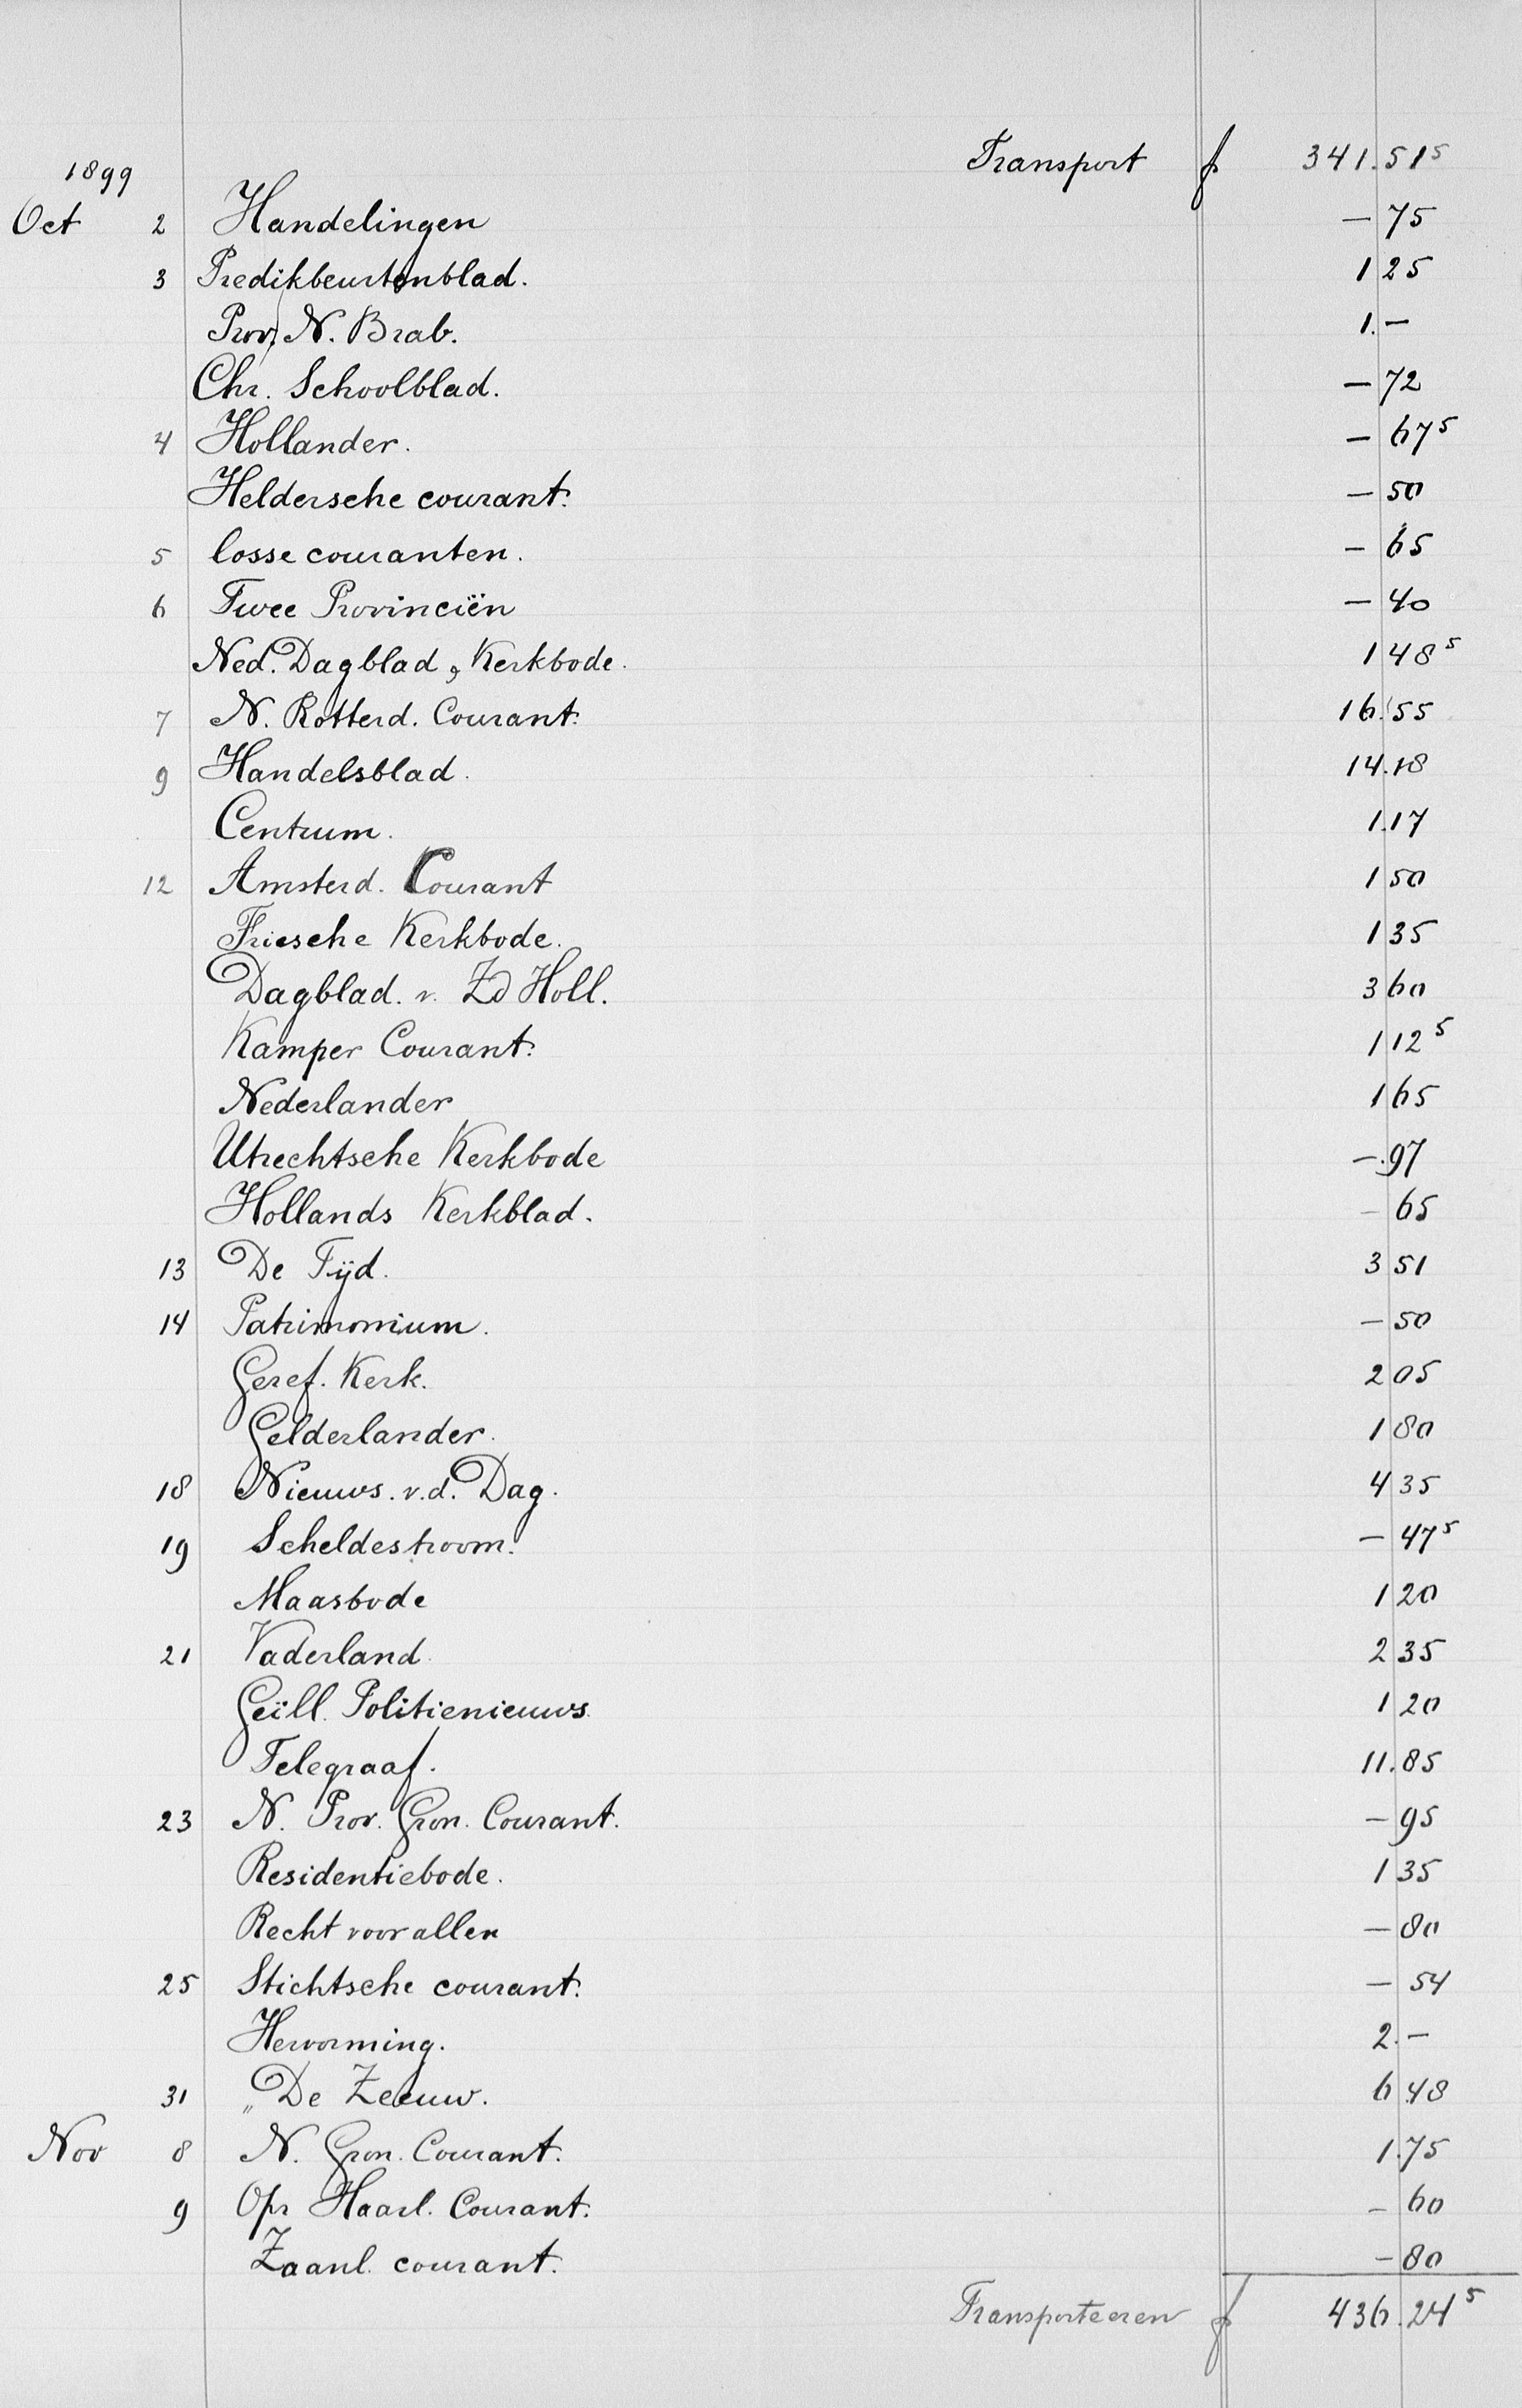 Transport f 341.51⁵
1899
Oct 2 Handelingen — 75
3 Predikbeurtenblad. 1 25
Prov. N. Brab. 1. —
Chr. Schoolblad. — 72
4 Hollander. — 67⁵
Heldersche courant. — 50
5 losse couranten. — 65
6 Twee Provinciën — 40
Ned. Dagblad, Kerkbode. 1 48⁵
7 N. Rotterd. Courant. 16.55
9 Handelsblad. 14.18
Centrum. 1.17
12 Amsterd. Courant 1 50
Friesche Kerkbode. 1 35
Dagblad. v. Zd Holl. 3 60
Kamper Courant. 1 12⁵
Nederlander 1 65
Utrechtsche Kerkbode —.97
Hollands Kerkblad. — 65
13 De Tijd. 3 51
14 Patrimonium. — 50
Geref. Kerk. 2 05
Gelderlander. 1 80
18 Nieuws. v.d. Dag. 4 35
19 Scheldestroom. — 47⁵
Maasbode 1 20
21 Vaderland. 2 35
Geïll. Politienieuws. 1 20
Telegraaf. 11.85
23 N. Prov. Gron. Courant. — 95
Residentiebode. 1 35
Recht voor allen — 80
25 Stichtsche courant. — 54
Hervorming. 2. —
31 „De Zeeuw. 6 48
Nov 8 N. Gron. Courant. 1.75
9 Opr Haarl. Courant. — 60
Zaanl. courant. — 80
Transporteeren f 436.24⁵